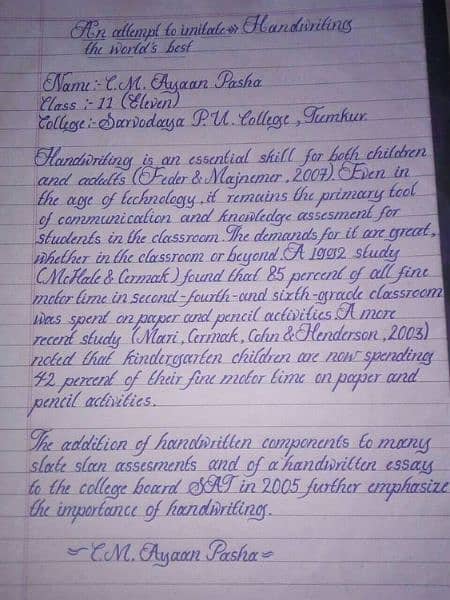 An attempt to imitate Handwriting
the world's best
Name:- C.M. Ayaan Pasha
Class :- 11 (Eleven)
College:- Sarvodaya P.U. College, Tumkur.
Handwriting is an essential skill for both children
and adults (Feder & Majnemer, 2007). Even in
the age of technology, it remains the primary tool
of communication and knowledge assesment for
students in the classroom. The demands for it are great,
whether in the classroom or beyond. A 1992 study
(McHale & Cermak) found that 85 percent of all fine
motor time in second-fourth-and sixth-grade classroom
was spent on paper and pencil activities. A more
recent study (Mari, Cermak, Cohn & Henderson, 2003)
noted that kindergarten children are now spending
42 percent of their fine motor time on paper and
pencil activities.
The addition of handwritten components to many
state slan assesments and of a handwritten essays
to the college board SAT in 2005 further emphasize
the importance of handwriting.
~ C.M. Ayaan Pasha ~